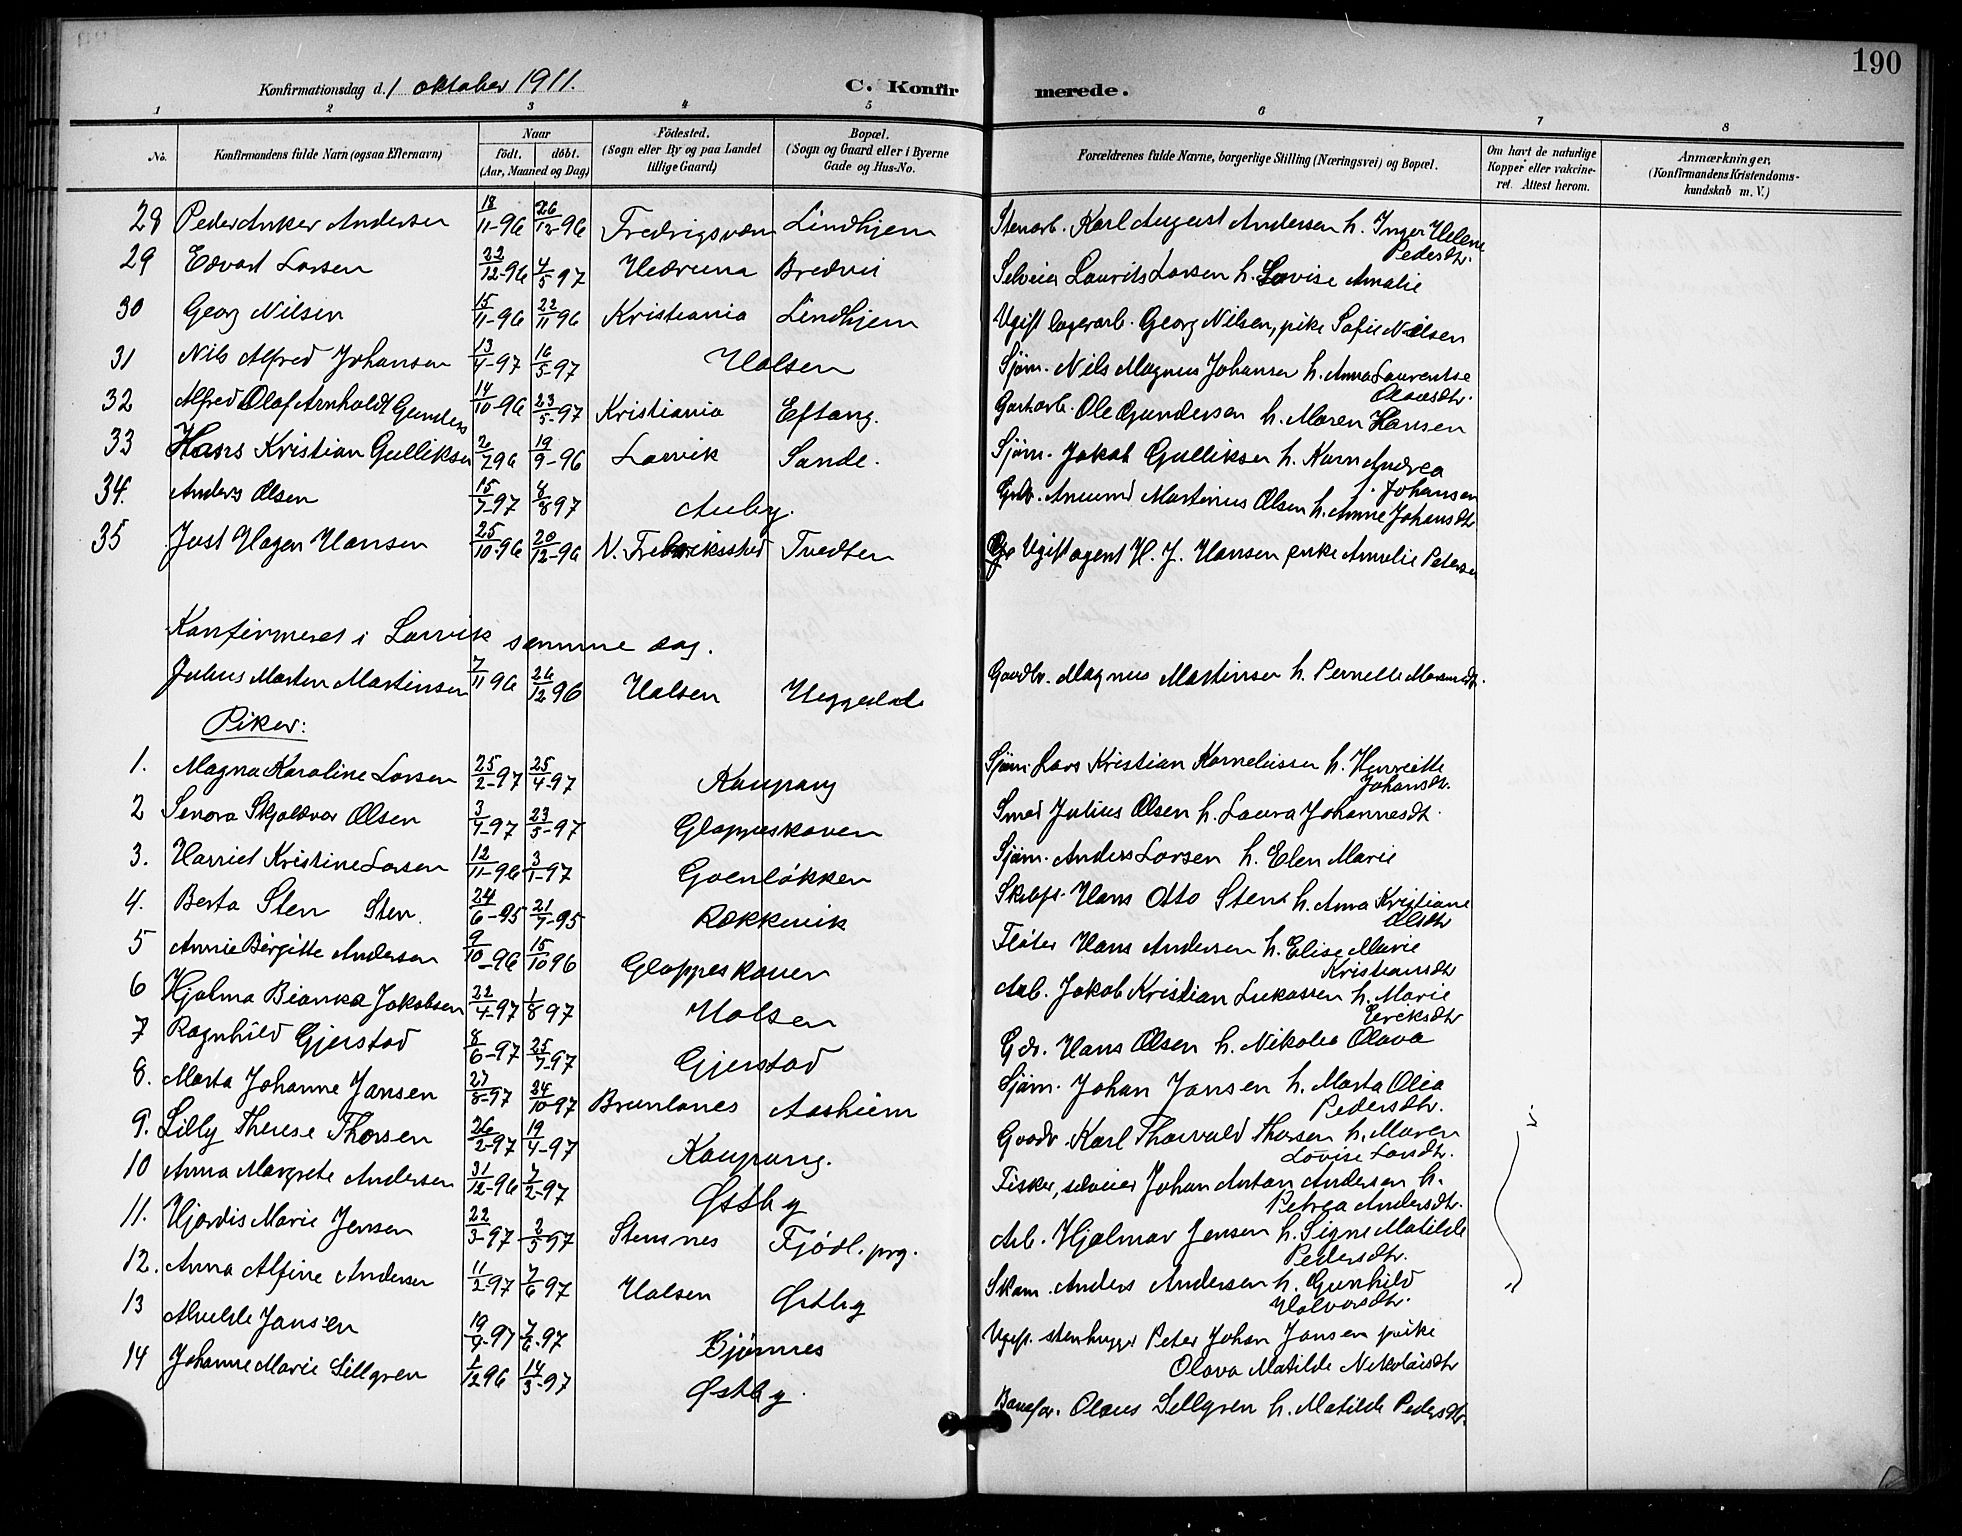 190
Konfirmationsdag d. 1 oktober 1911.
C. Konfirmerede.
1 2 3 4 5 6 7 8
No.
Konfirmandens fulde Navn (ogsaa Efternavn)
Naar
födt. döbt.
(Aar, Maaned og Dag)
Födested.
(Sogn eller By og paa Landet
tillige Gaard)
Bopæl.
(Sogn og Gaard eller i Byerne
Gade og Hus-No.
Forældrenes fulde Navne, borgerlige Stilling (Næringsvei) og Bopæl.
Om havt de naturlige
Kopper eller vakcine-
ret. Attest herom.
Anmærkninger,
(Konfirmandens Kristendoms-
kundskab m. V.)
28 Peder Anker Andersen 18/11-96 26/12-96 Fredrigsværn Lindhjem Stenarb. Karl August Andersen h. Inger Helene
Pedersdtr.
29 Edvart Larsen 23/12-96 4/5 97 Hedrum Bredvei Selveier Laurits Larsen h. Lovise Amalie
30 Georg Nilsen 15/11-96 22/11 96 Kristiania Lindhjem Ugift lagerarb. Georg Nilsen, pike Sofie Nilsen
31 Nils Alfred Johansen 13/4-97 16/5-97 Halsen Sjöm. Nils Magnus Johansen h. Anna Laurentse
Olavsdtr.
32 Alfred Olaf Arnholdt Gunders 14/10-96 23/5-97 Kristiania Eftang. Gartarb. Ole Gundersen h. Maren Hansen
33 Hans Kristian Gulliksen 2/7 96 19/9-96 Larvik Sande. Sjöm. Jakob Gulliksen h. Karn Andrea
Johansen
34. Anders Olsen 15/7-97 8/8 97 Auby. Gdr. Anund Martinius Olsen h. Anne Johansdtr
35 Just Hagen Hansen 25/10-96 20/12-96 V. Frederiksstad Tvedten Ugift agent H. J. Hansen pike Amalie Petersen
Konfirmeret i Larvik samme dag.
Julius Marten Martinsen 7/11 96 26/12 96 Halsen Heggedal Gaardbr. Magnus Martinsen h. Pernelle
Piker:
1. Magna Karoline Larsen 25/2-97 25/4-97 Kaupang Sjöm. Lars Kristian Korneliussen h. Henriette
Johansdtr.
2 Senora Skjoldvor Olsen 3/4-97 23/5-97 Gloppeskoven Smed Julius Olsen h. Laura Johannesdt.
3. Harriet Kristine Larsen 12/11-96 3/1-97 Goenlökken Sjöm. Anders Larsen h. Elen Marie
4. Berta Sten Sten. 24/6-95 21/7-95 Rekkevik Skibsf. Hans Otto Sten h. Anna Kristiane
Olsdtr
5 Annie Birgitte Andersen 9/10-96 15/10 96 Gloppeskoven Flöter Hans Andersen h. Elise Marie
Kristiansdtr
6 Hjalma Bianka Jakobsen 22/4-97 1/8 97 Halsen Arb. Jakob Kristian Lukassen h. Marie
Eireksdtr
7 Ragnhild Gjerstad 8/6-97 25/7-97 Gjerstad Gdr. Hans Olsen h. Nikolea Olava
8. Marta Johanne Jansen 27/8-97 24/10-97 Brunlanes Aasheim Sjöm. Johan Jansen h. Marta Olea
Pedersdtr.
9. Lilly Therese Thorsen 26/2-97 19/4-97 Kaupang. Gaardr. Karl Thorvald Thorsen h. Maren
Lovise Larsdtr.
10 Anna Margrete Andersen 31/12-96 7/2-97 Østby Fisker, selveier Johan Anton Andersen h.
Petrea Andersdtr.
11. Hjördis Marie Jensen 22/3-97 2/5 97 Stemnes Fjödl. prg. Arb. Hjalmar Jensen h. Signe Matilde
Pedersdtr.
12. Anna Alfine Andersen 11/2-97 7/6 97 Halsen Østby Skom. Anders Andersen h. Gunhild
Halvorsdtr.
13 Alvilde Jansen 19/4-97 7/6-97 Bjønnes Ugift. stenhugger Peter Johan Jansen pike
Olava Matilde Nikolaisdtr
14 Johanne Marie Sellgren 1/12 96 14/3-97 Østby. Banefor. Olaus Sellgren h. Matilde Pedersdtr.